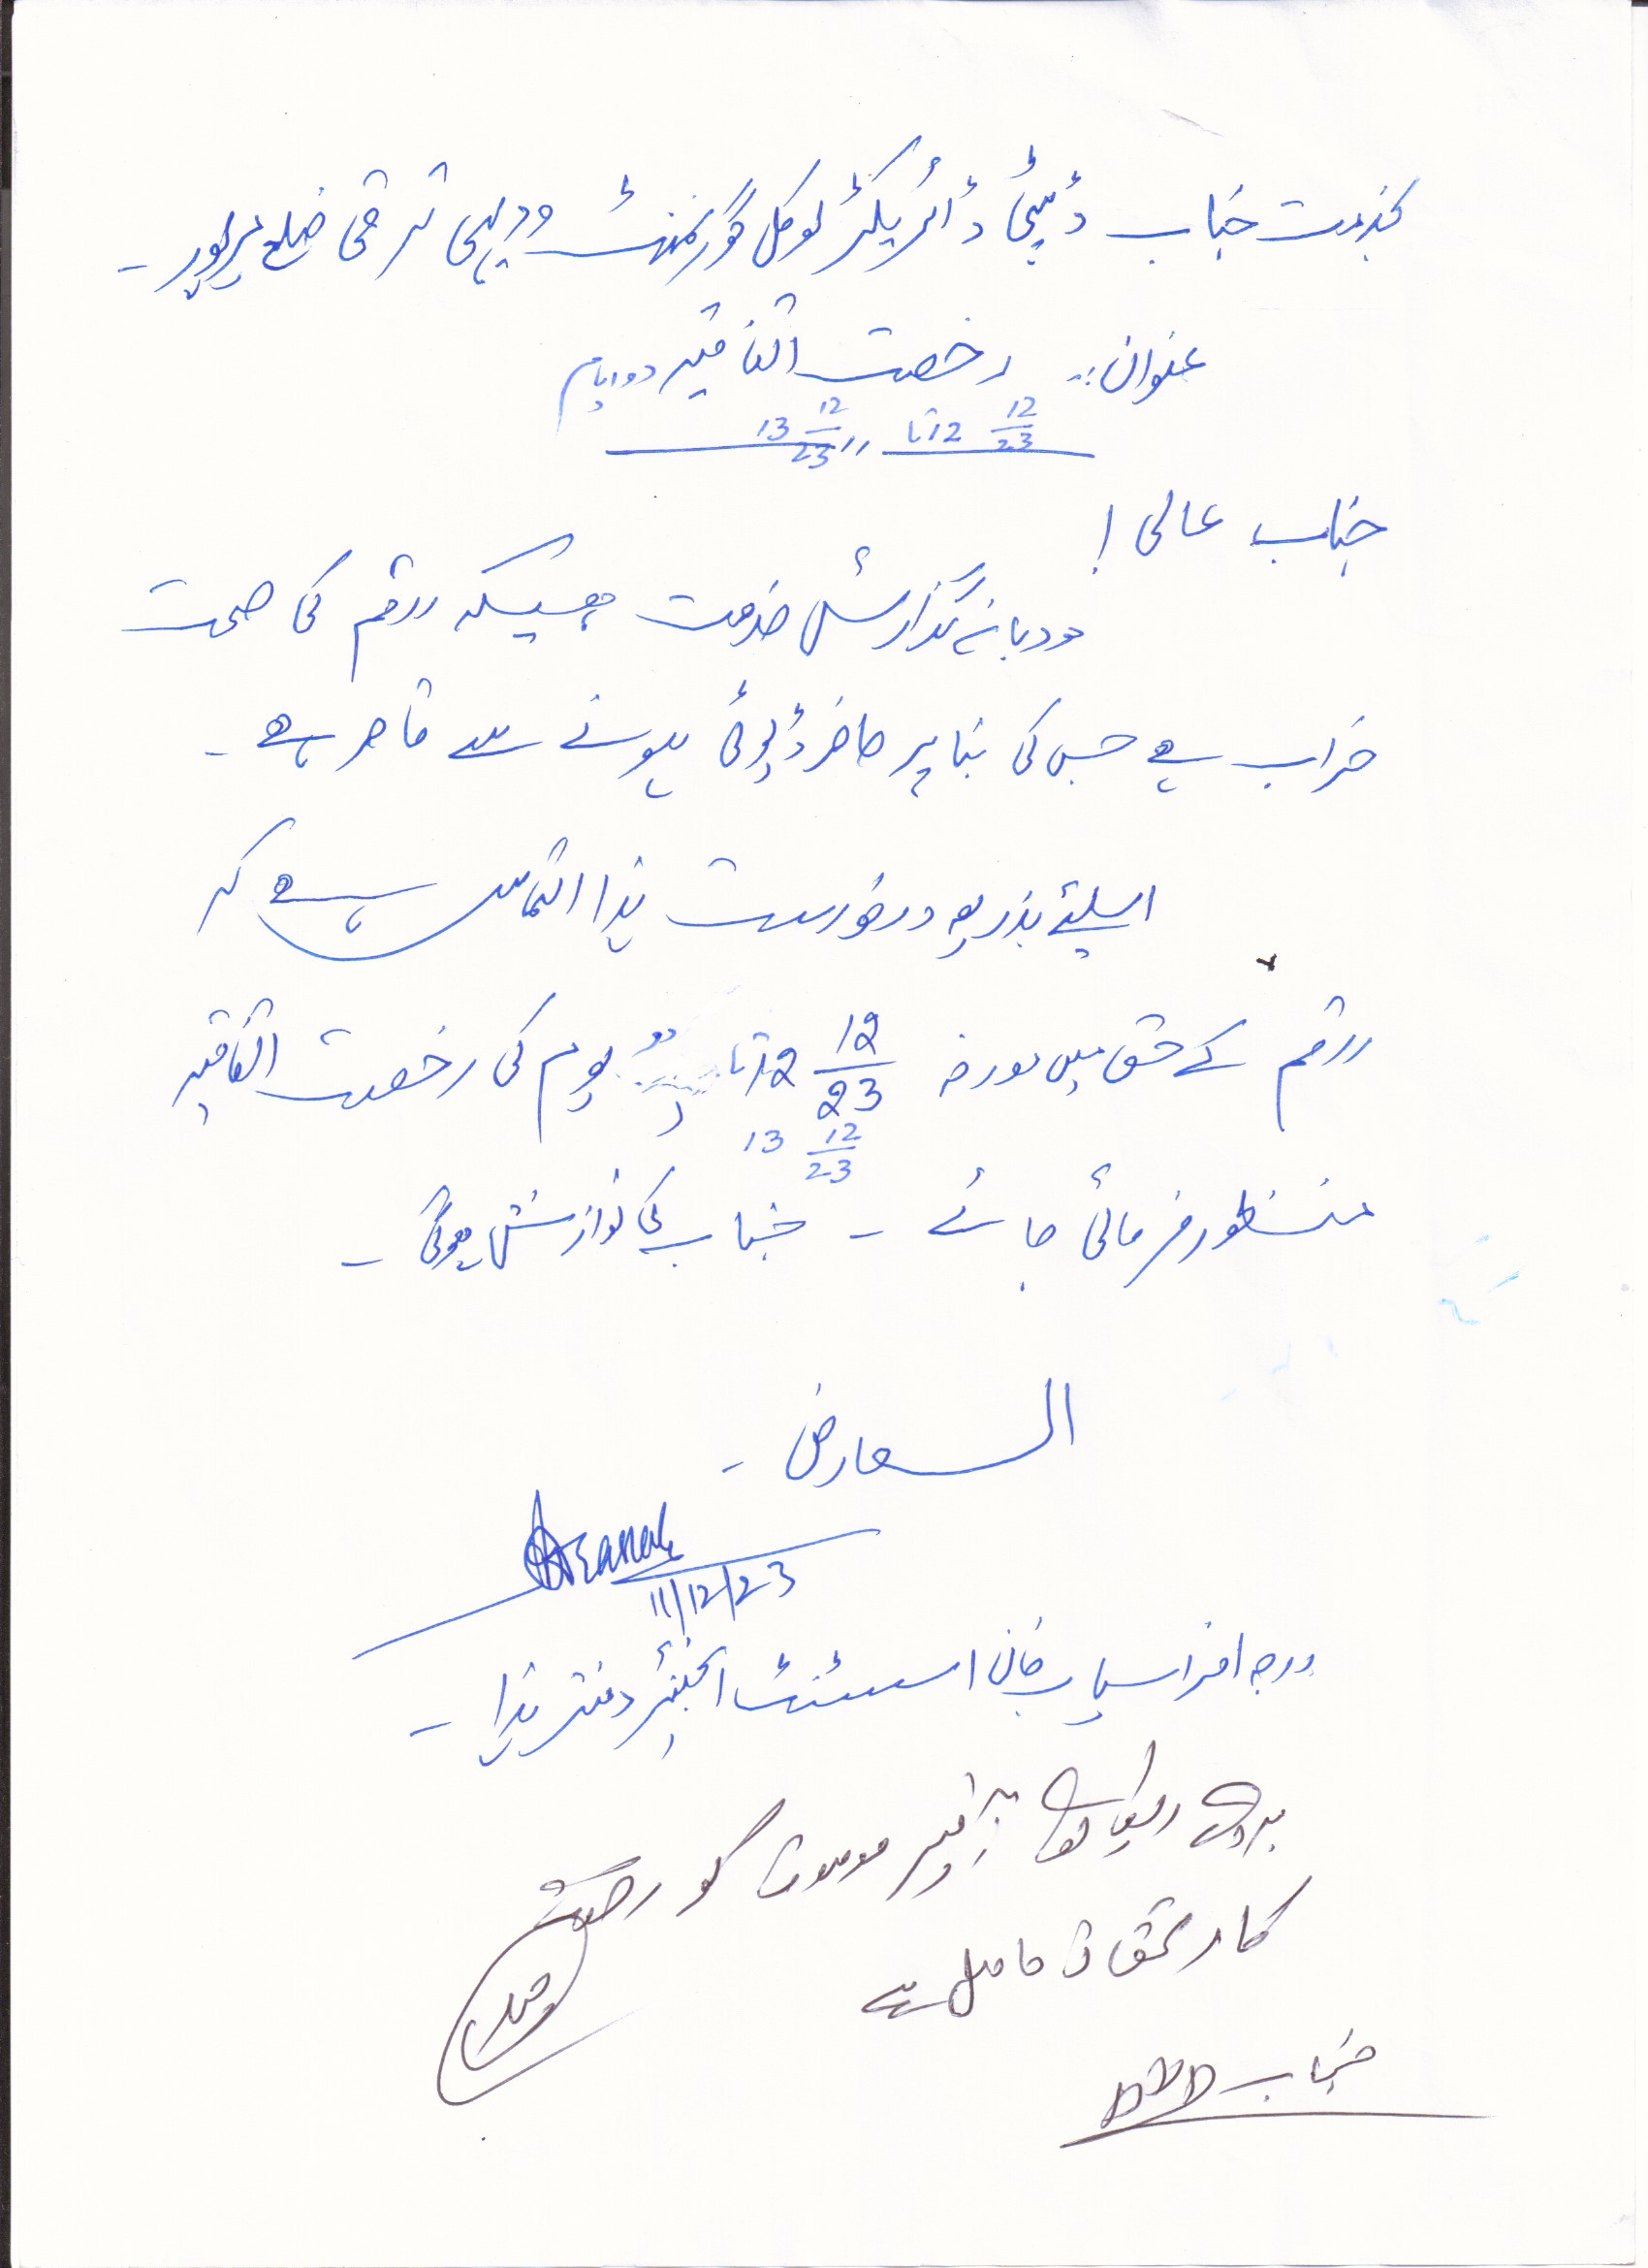 بخدمت جناب ڈپٹی ڈائریکٹر لوکل گورنمنٹ و دیہی ترقی ضلع میرپور ۔
عنوان:۔ رخصت اتفاقیہ دو ایام
12 12/23 تا 13 12/23 //
جناب عالی !
مودبانہ گذارش خدمت ہیکہ راقم کی صحت
خراب ہے جس کی بنا پر حاضر ڈیوٹی ہونے سے قاصر ہے ۔
اسلیئے بذریعہ درخوست ہذا التماس ہے کہ
راقم کے حق میں مورخہ 12 12/23 تا دو یوم کی رخصت اتفاقیہ
13 12/23
منظور فرمائی جائے ۔ جناب کی نوازش ہوگی ۔
العارض ۔
11/12/23
راجہ افراسیاب خان اسسٹنٹ انجینئر دفتر ہذا ۔
آفیسر موصوف کو رخصت
کا استحقاق حاصل ہے
جناب DD